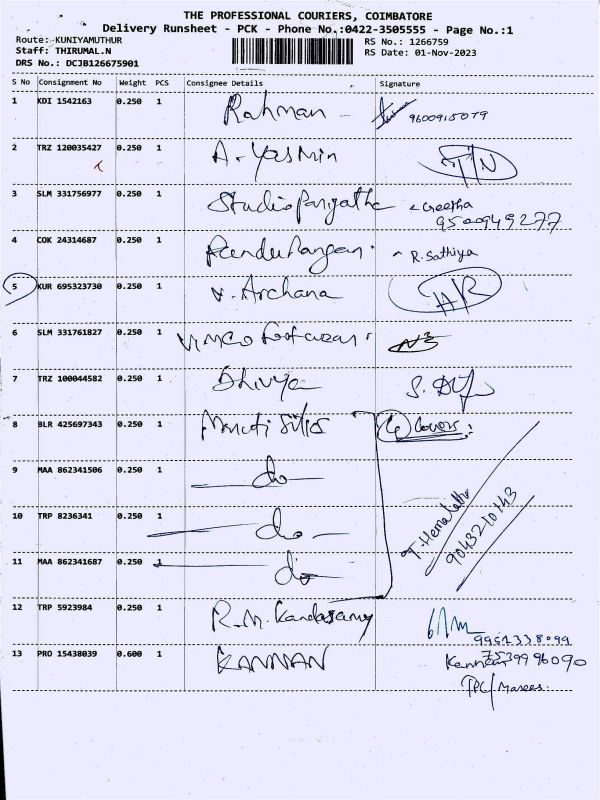 THE PROFESSIONAL COURIERS, COIMBATORE
Delivery Runsheet - PCK - Phone No.:0422-3505555 - Page No.:1
Route: KUNIYAMUTHUR
RS No.: 1266759
Staff: THIRUMAL.N
RS Date: 01-Nov-2023
DRS No.: DCJB126675901
S No Consignment No Weight PCS Consignee Details Signature
1 KDI 1542163 0.250 1 Rahman 9600915079
2 TRZ 120035427 0.250 1 A. Yasmin
3 SLM 331756977 0.250 1 Studio Parijatha Greetha
9500949277
4 COK 24314687 0.250 1 Pandurangan R. Sathiya
5 KUR 695323730 0.250 1 V. Archana
6 SLM 331761827 0.250 1
7 TRZ 100044582 0.250 1 Dhivya
8 BLR 425697343 0.250 1 Maruti Silks 4 Covers
9 MAA 862341506 0.250 1 do
10 TRP 8236341 0.250 1 do
T. Hemalatha
9043210143
11 MAA 862341687 0.250 1 do
12 TRP 5923984 0.250 1 R.M. Kandasamy
13 PRO 15438039 0.600 1 KANNAN Kannan
7539996090